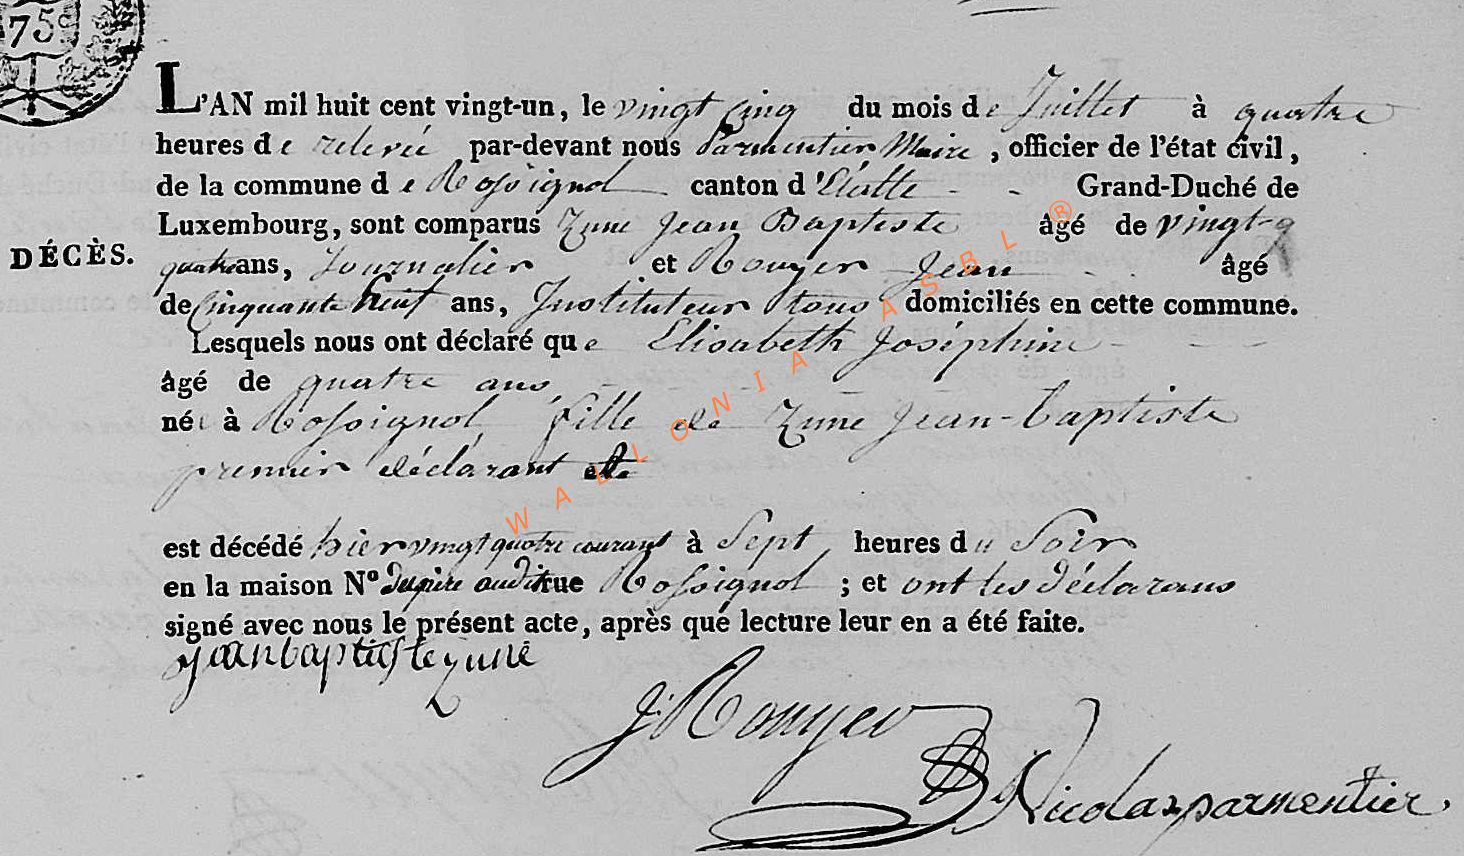 75c
L'AN mil huit cent vingt-un, le vingt cinq du mois de Juillet à quatre
heures de relevée par-devant nous Parmentier Maire, officier de l'état civil,
de la commune de Rossignol canton d'Etalle Grand-Duché de
Luxembourg, sont comparus Zune Jean Baptiste âgé de vingt-q
DÉCÈS.
quatre ans, Journalier et Rouyer Jean âgé
de Cinquante huit ans, Instituteur tous domiciliés en cette commune.
Lesquels nous ont déclaré que Elisabeth Joséphine
âgé de quatre ans,
née à Rossignol fille de Zune Jean-baptiste
premier déclarant
est décédé hier vingt quatre courant à Sept heures du Soir
en la maison N° du père audit rue Rossignol ; et ont les déclarans
signé avec nous le présent acte, après que lecture leur en a été faite.
jean baptiste zune
J: Rouyer
Nicolas parmentier
WALLONIA ASBL ®